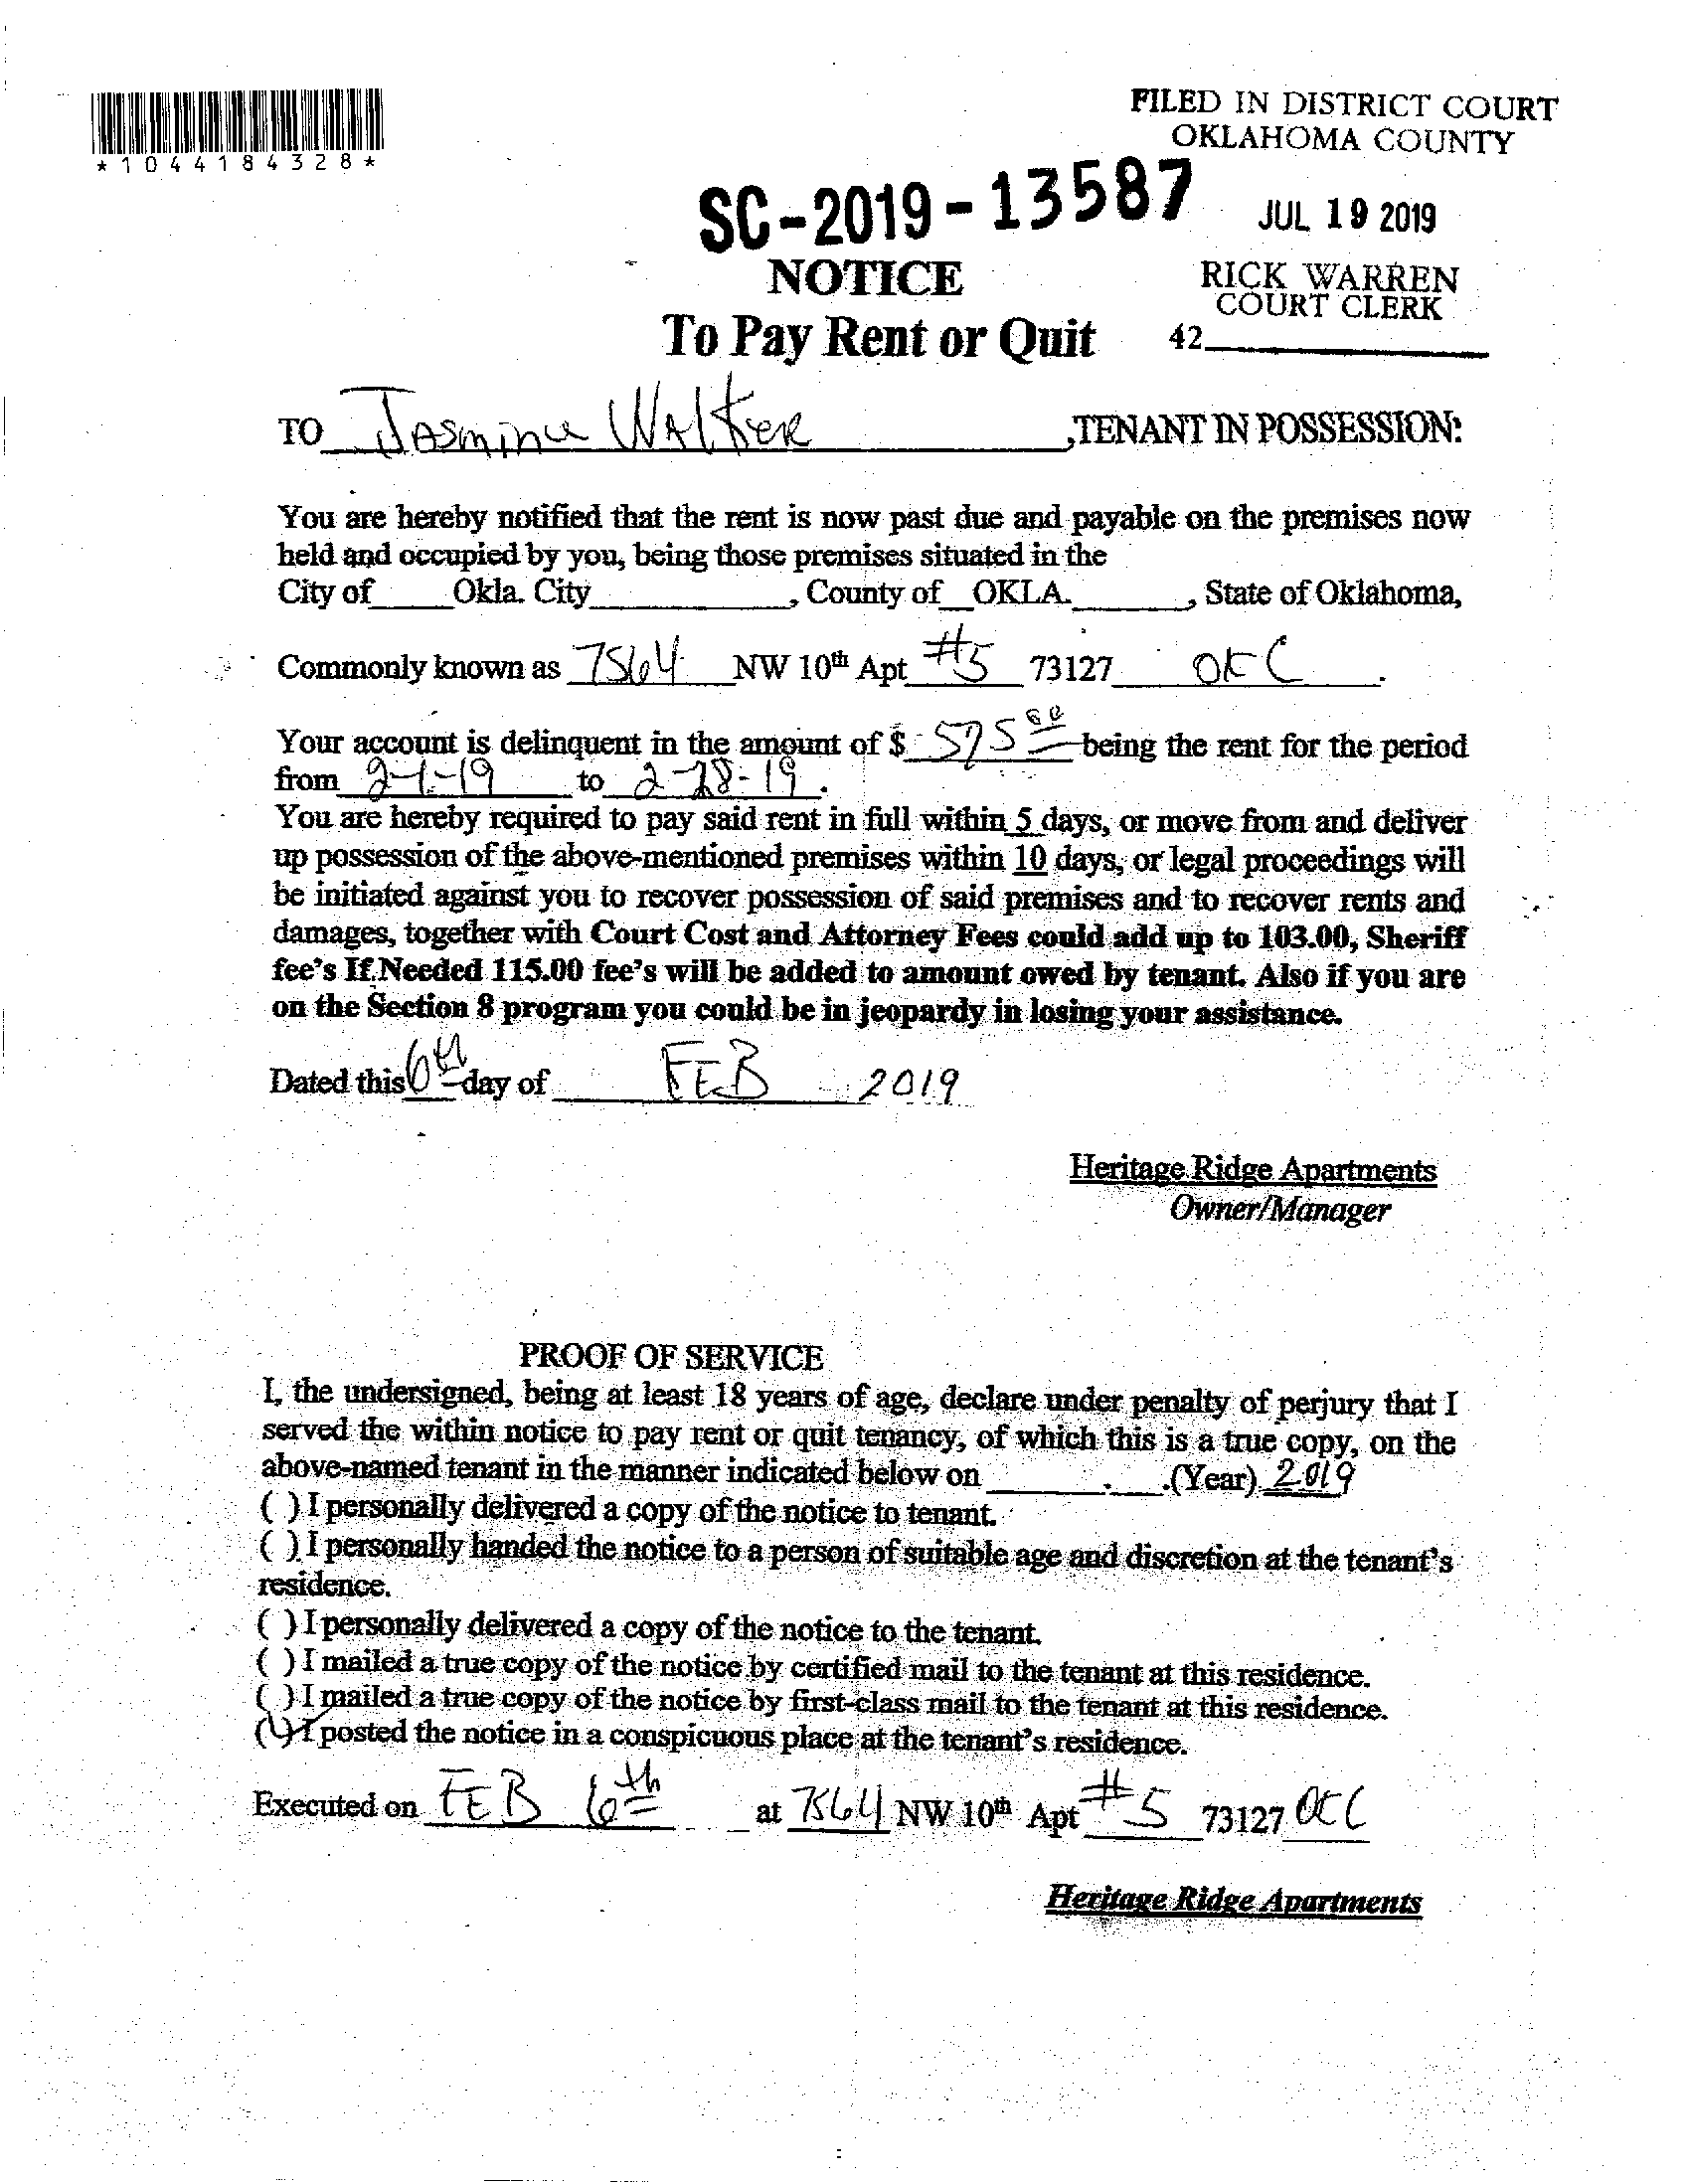 FILED IN DISTRICT COURT
OKLAHOMA COUNTY
*1044184328*
SC-2019-13587
JUL 19 2019
NOTICE
RICK WARREN
COURT CLERK
To Pay Rent or Quit
42
TO Jasmine Walker ,TENANT IN POSSESSION:
You are hereby notified that the rent is now past due and payable on the premises now
held and occupied by you, being those premises situated in the
City of Okla. City , County of OKLA. , State of Oklahoma,
Commonly known as 7564 NW 10th Apt #5 73127 OKC .
Your account is delinquent in the amount of $ 575 00 being the rent for the period
from 2-1-19 to 2-28-19.
You are hereby required to pay said rent in full within 5 days, or move from and deliver
up possession of the above-mentioned premises within 10 days, or legal proceedings will
be initiated against you to recover possession of said premises and to recover rents and
damages, together with Court Cost and Attorney Fees could add up to 103.00, Sheriff
fee's If Needed 115.00 fee's will be added to amount owed by tenant. Also if you are
on the Section 8 program you could be in jeopardy in losing your assistance.
Dated this 6th day of FEB 2019
Heritage Ridge Apartments
Owner/Manager
PROOF OF SERVICE
I, the undersigned, being at least 18 years of age, declare under penalty of perjury that I
served the within notice to pay rent or quit tenancy, of which this is a true copy, on the
above-named tenant in the manner indicated below on .(Year) 2019
( ) I personally delivered a copy of the notice to tenant.
( ) I personally handed the notice to a person of suitable age and discretion at the tenant's
residence.
( ) I personally delivered a copy of the notice to the tenant.
( ) I mailed a true copy of the notice by certified mail to the tenant at this residence.
( ) I mailed a true copy of the notice by first-class mail to the tenant at this residence.
(✓) I posted the notice in a conspicuous place at the tenant's residence.
Executed on FEB 6th at 7564 NW 10th Apt #5 73127 OKC
Heritage Ridge Apartments